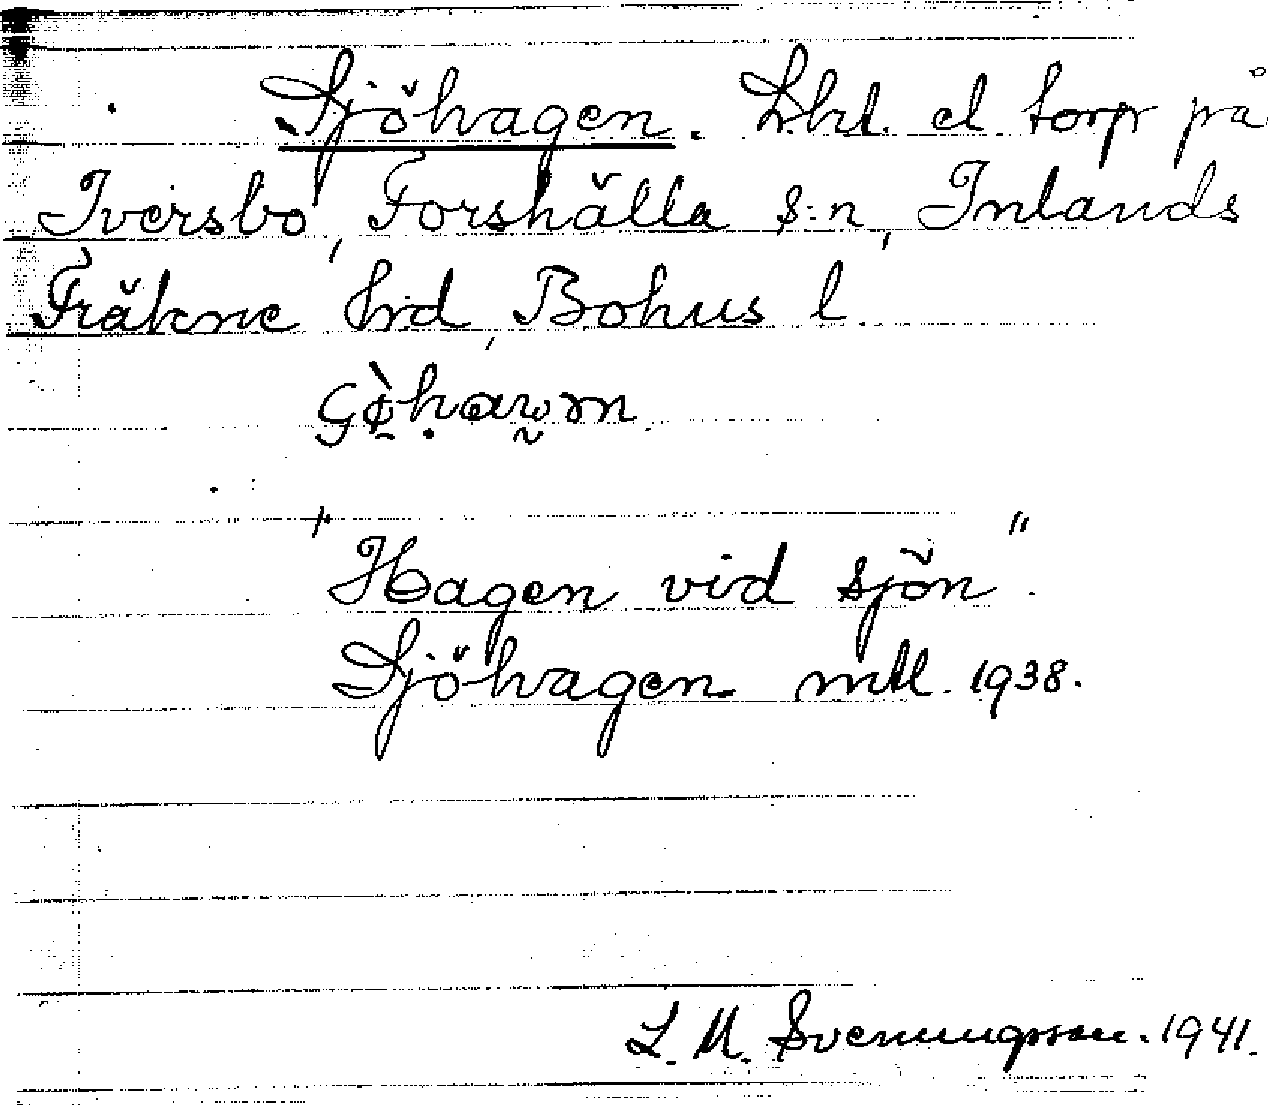 Sjöhagen. Lht. el torp på
Iversbo, Forshälla s:n, Inlands
Fräkne hrd, Bohus l.
"Hagen vid sjön".
Sjöhagen mtl. 1938.
L. M. Svenungsson. 1941.